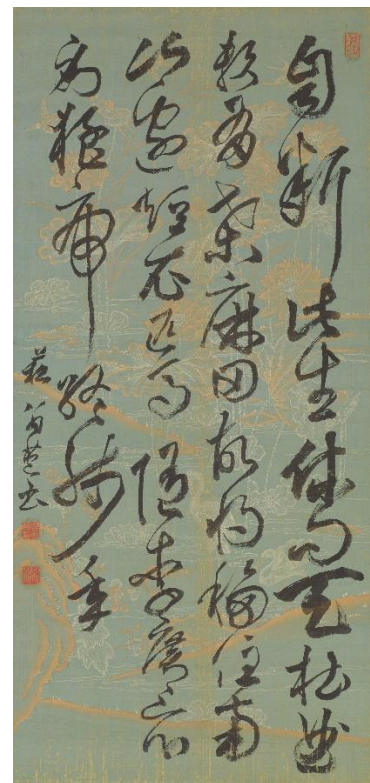 自斷此生休問天杜曲
有桑麻田故將移住南
山邊短衣匹馬隨李廣看
射猛虎終殘年
書